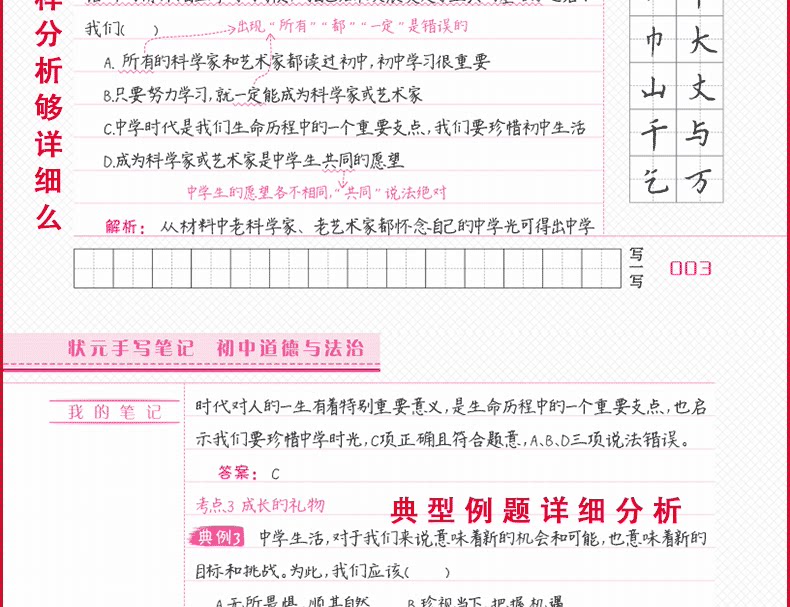 样分析够详细么
我们(　　)
出现“所有”“都”“一定”是错误的
A. 所有的科学家和艺术家都读过初中,初中学习很重要
B.只要努力学习,就一定能成为科学家或艺术家
C.中学时代是我们生命历程中的一个重要支点,我们要珍惜初中生活
D.成为科学家或艺术家是中学生共同的愿望
中学生的愿望各不相同,“共同”说法绝对
解析: 从材料中老科学家、老艺术家都怀念自己的中学光可得出中学
巾 大
山 丈
千 与
乞 万
写一写
003
状元手写笔记 初中道德与法治
我的笔记
时代对人的一生有着特别重要意义,是生命历程中的一个重要支点,也启
示我们要珍惜中学时光,C项正确且符合题意,A、B、D三项说法错误。
答案: C
考点3 成长的礼物
典型例题详细分析
典例3 中学生活,对于我们来说意味着新的机会和可能,也意味着新的
目标和挑战。为此,我们应该(　　)
A.无所畏惧,顺其自然 B.珍视当下,把握机遇